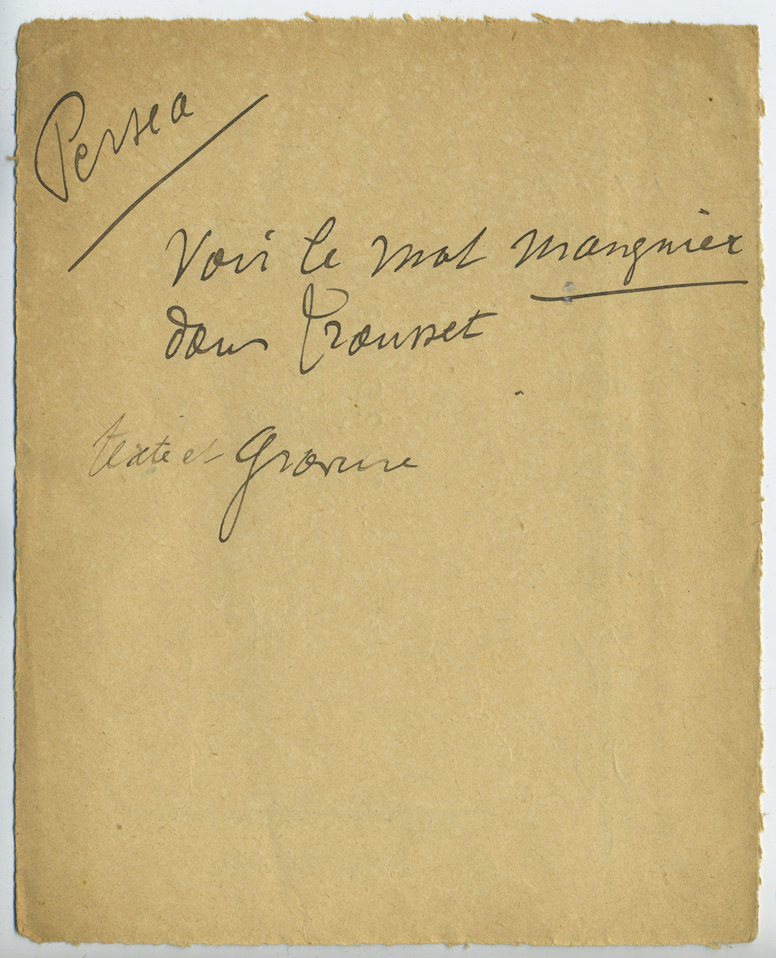 Persea
Voir le mot manguier
dans Trousset
texte et Gravure